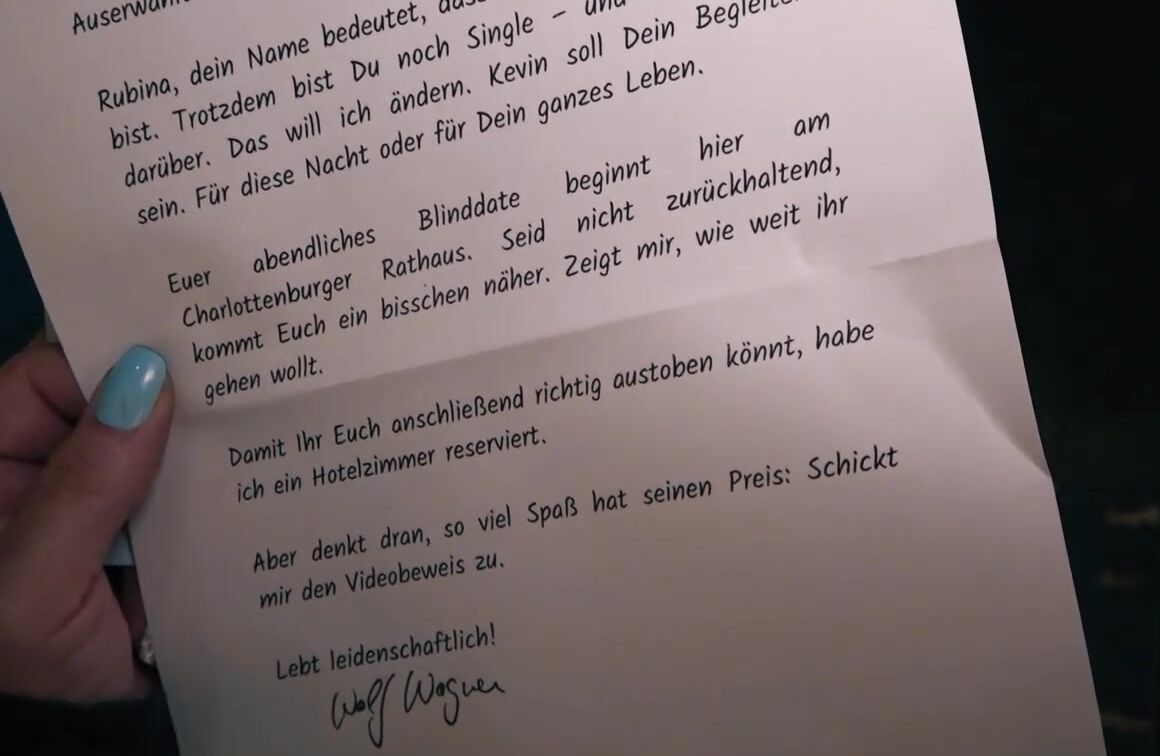 Rubina, dein Name bedeutet,
bist. Trotzdem bist Du noch Single – und
darüber. Das will ich ändern. Kevin soll Dein
sein. Für diese Nacht oder für Dein ganzes Leben.
Euer abendliches Blinddate beginnt hier am
Charlottenburger Rathaus. Seid nicht zurückhaltend,
kommt Euch ein bisschen näher. Zeigt mir, wie weit ihr
gehen wollt.
Damit Ihr Euch anschließend richtig austoben könnt, habe
ich ein Hotelzimmer reserviert.
Aber denkt dran, so viel Spaß hat seinen Preis: Schickt
mir den Videobeweis zu.
Lebt leidenschaftlich!
Wolf Wagner